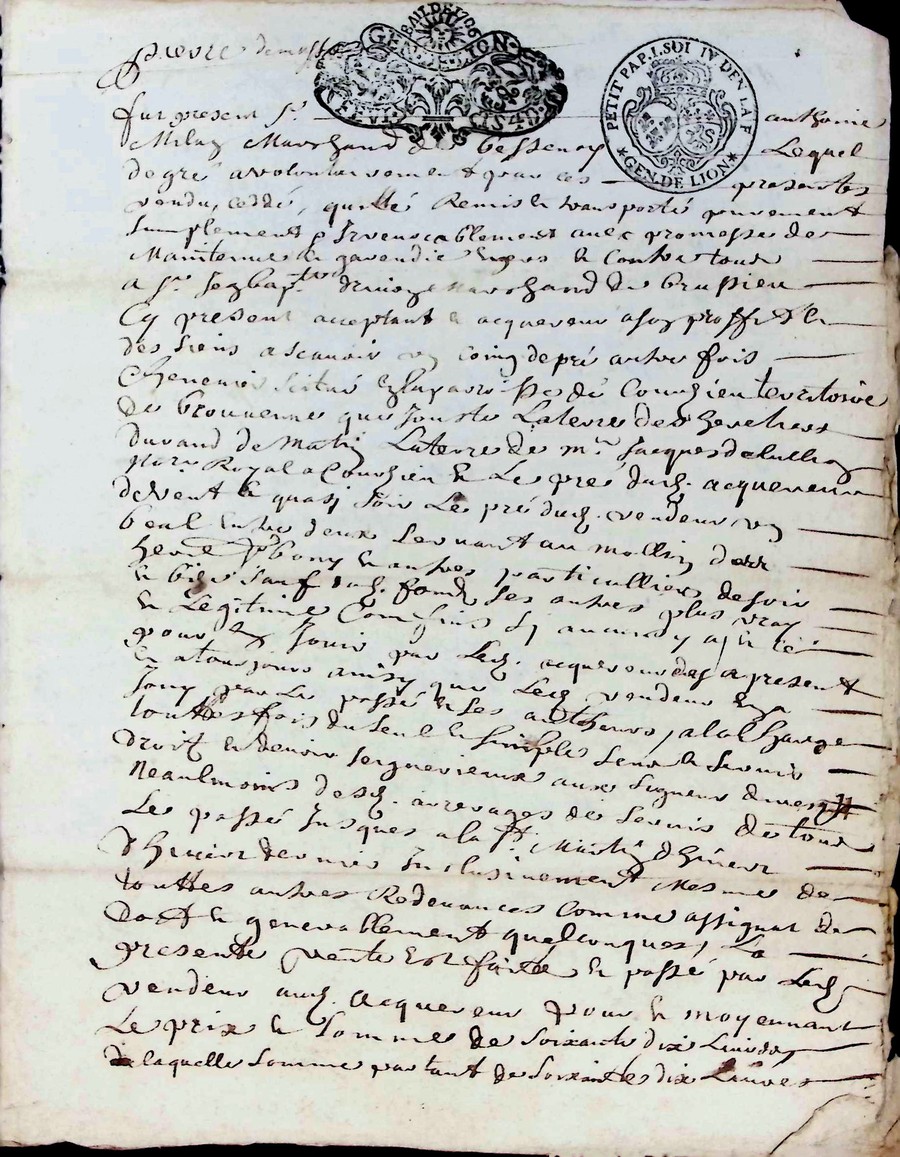 BAIL DE 1706
GEN. DE LION
PETIT PAP. 1. SOL IV DEN LA F
GEN. DE LION
pierre
fut present Sr. anthoine
Milan Marchand de bessenay Lequel
de gré a volontairement par ces presentes
vendu, ceddé, quitté Remis et transporté purement
simplement et Irrevocablement avec promesse de
Maintenue et garendie envers et Contre tous
a Sr. Jean bapte. Marchand de brussieu
Cy present acceptant et acquereur a son proffit et
des siens ascavoir un coing de pré autre fois
Chenevier scitué en la parroisse de Courzieu territoire
de brouenne qui Jouste La terre des heretiers
durand de Matin La terre de me. Jacques
nore Royal a Courzieu et Le pré dud. acquereur
de vent et quasy soir Le pré dud. vendeur un
beal entre deux servant au mollin des
bony et autres particulliers de soir
et bize sauf dud. fond ses autres plus vray
et Legitime Confins sy aucuns y a
pour en Jouir par Led. acquereur des a present
et a tousjours ainsy que Led. vendeur en a
Jouy par Le passé et ses autheurs, a la Charge
touttes fois du seul et simple cens et servis
Droit et devoir seigneuriaux aux seigneur
Neaulmoins desd. arrerages de servis de tout
Le passé Jusques a la St. Martin d'hiver
dernier Inclusivement Mesme de
touttes autres Redevances comme assignat de
Dot et generallement quelconques, La
presente vente est faitte et passé par Led.
vendeur aud. acquereur pour et moyennant
Le prix et somme de soixante dix Livres
de laquelle somme partant de soixante dix Livres